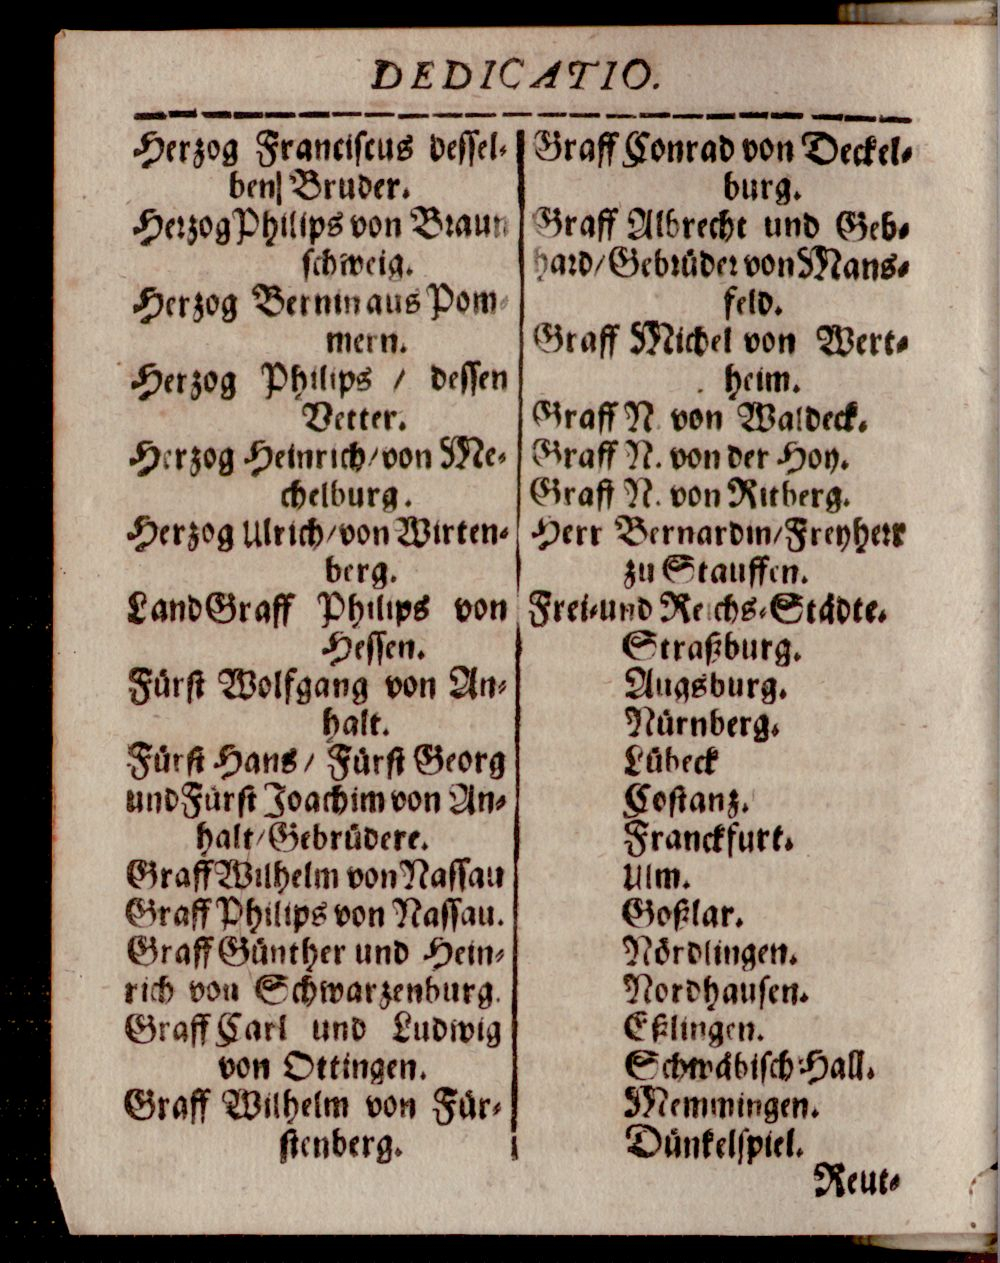 DEDICATIO.
Herzog Franciscus dessel-
ben/ Bruder.
Herzog Philips von Braun
schweig.
Herzog Bernin aus Pom-
mern.
Herzog Philips / dessen
Vetter.
Herzog Heinrich/von Me-
chelburg.
Herzog Ulrich/von Wirten-
berg.
LandGraff Philips von
Hessen.
Fürst Wolfgang von An-
halt.
Fürst Hans / Fürst Georg
und Fürst Joachim von An-
halt/Gebrüdere.
Graff Wilhelm von Nassau
Graff Philips von Nassau.
Graff Günther und Hein-
rich von Schwarzenburg.
Graff Carl und Ludwig
von Ottingen.
Graff Wilhelm von Für-
stenberg.
Graff Conrad von Deckel-
burg.
Graff Albrecht und Geb-
hard/Gebrüder von Mans-
feld.
Graff Michel von Wert-
heim.
Graff N. von Waldeck.
Graff N. von der Hoy.
Graff N. von Ritberg.
Herr Bernardin/Freyherr
zu Stauffen.
Frei-und Reichs-Städte.
Straßburg.
Augsburg.
Nürnberg.
Lübeck
Costanz.
Franckfurt.
Ulm.
Goßlar.
Nördlingen.
Nordhausen.
Eßlingen.
Schwäbisch-Hall.
Memmingen.
Dünkelspiel.
Reut-